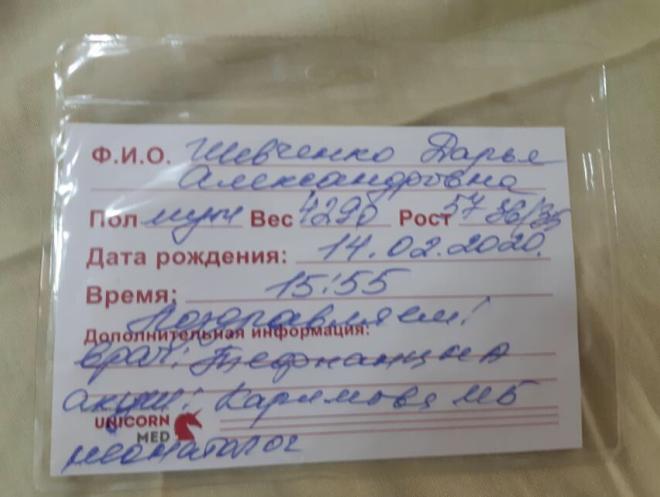 Ф.И.О. Шевченко Дарья
Александровна
Пол муж Вес 4290 Рост 57 36/35
Дата рождения: 14.02.2020.
Время: 15:55
Поздравляем!
Дополнительная информация:
Врач:
Каримова МБ
UNICORN
MED
неонатолог